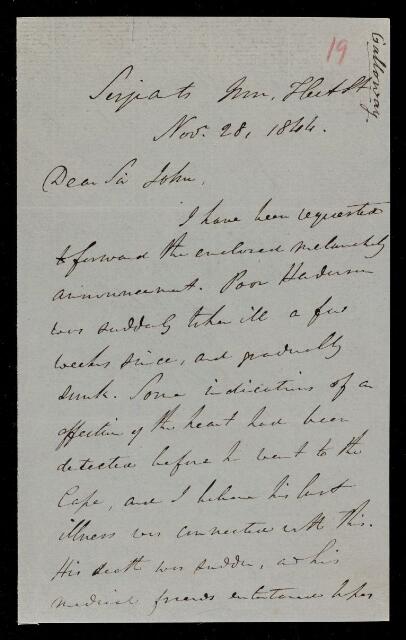 19
Galloway
Serjeants Inn, Fleet St
Nov. 28, 1844.
Dear Sir John,
I have been requested
to forward the enclosed melancholy
announcement. Poor Henderson
was suddenly taken ill a few
weeks since, and gradually
sunk. Some indications of an
affection of the heart had been
detected before he went to the
Cape, and I believe his last
illness was connected with this.
His death was sudden, as his
medical friends entertained hopes